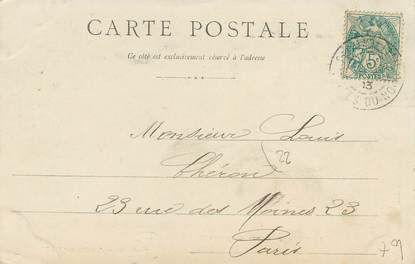 CARTE POSTALE
Ce côté est exclusivement réservé à l'adresse
5c
POSTES
13
Monsieur Louis
Théron
22
23 rue des Moines 23
Paris
79